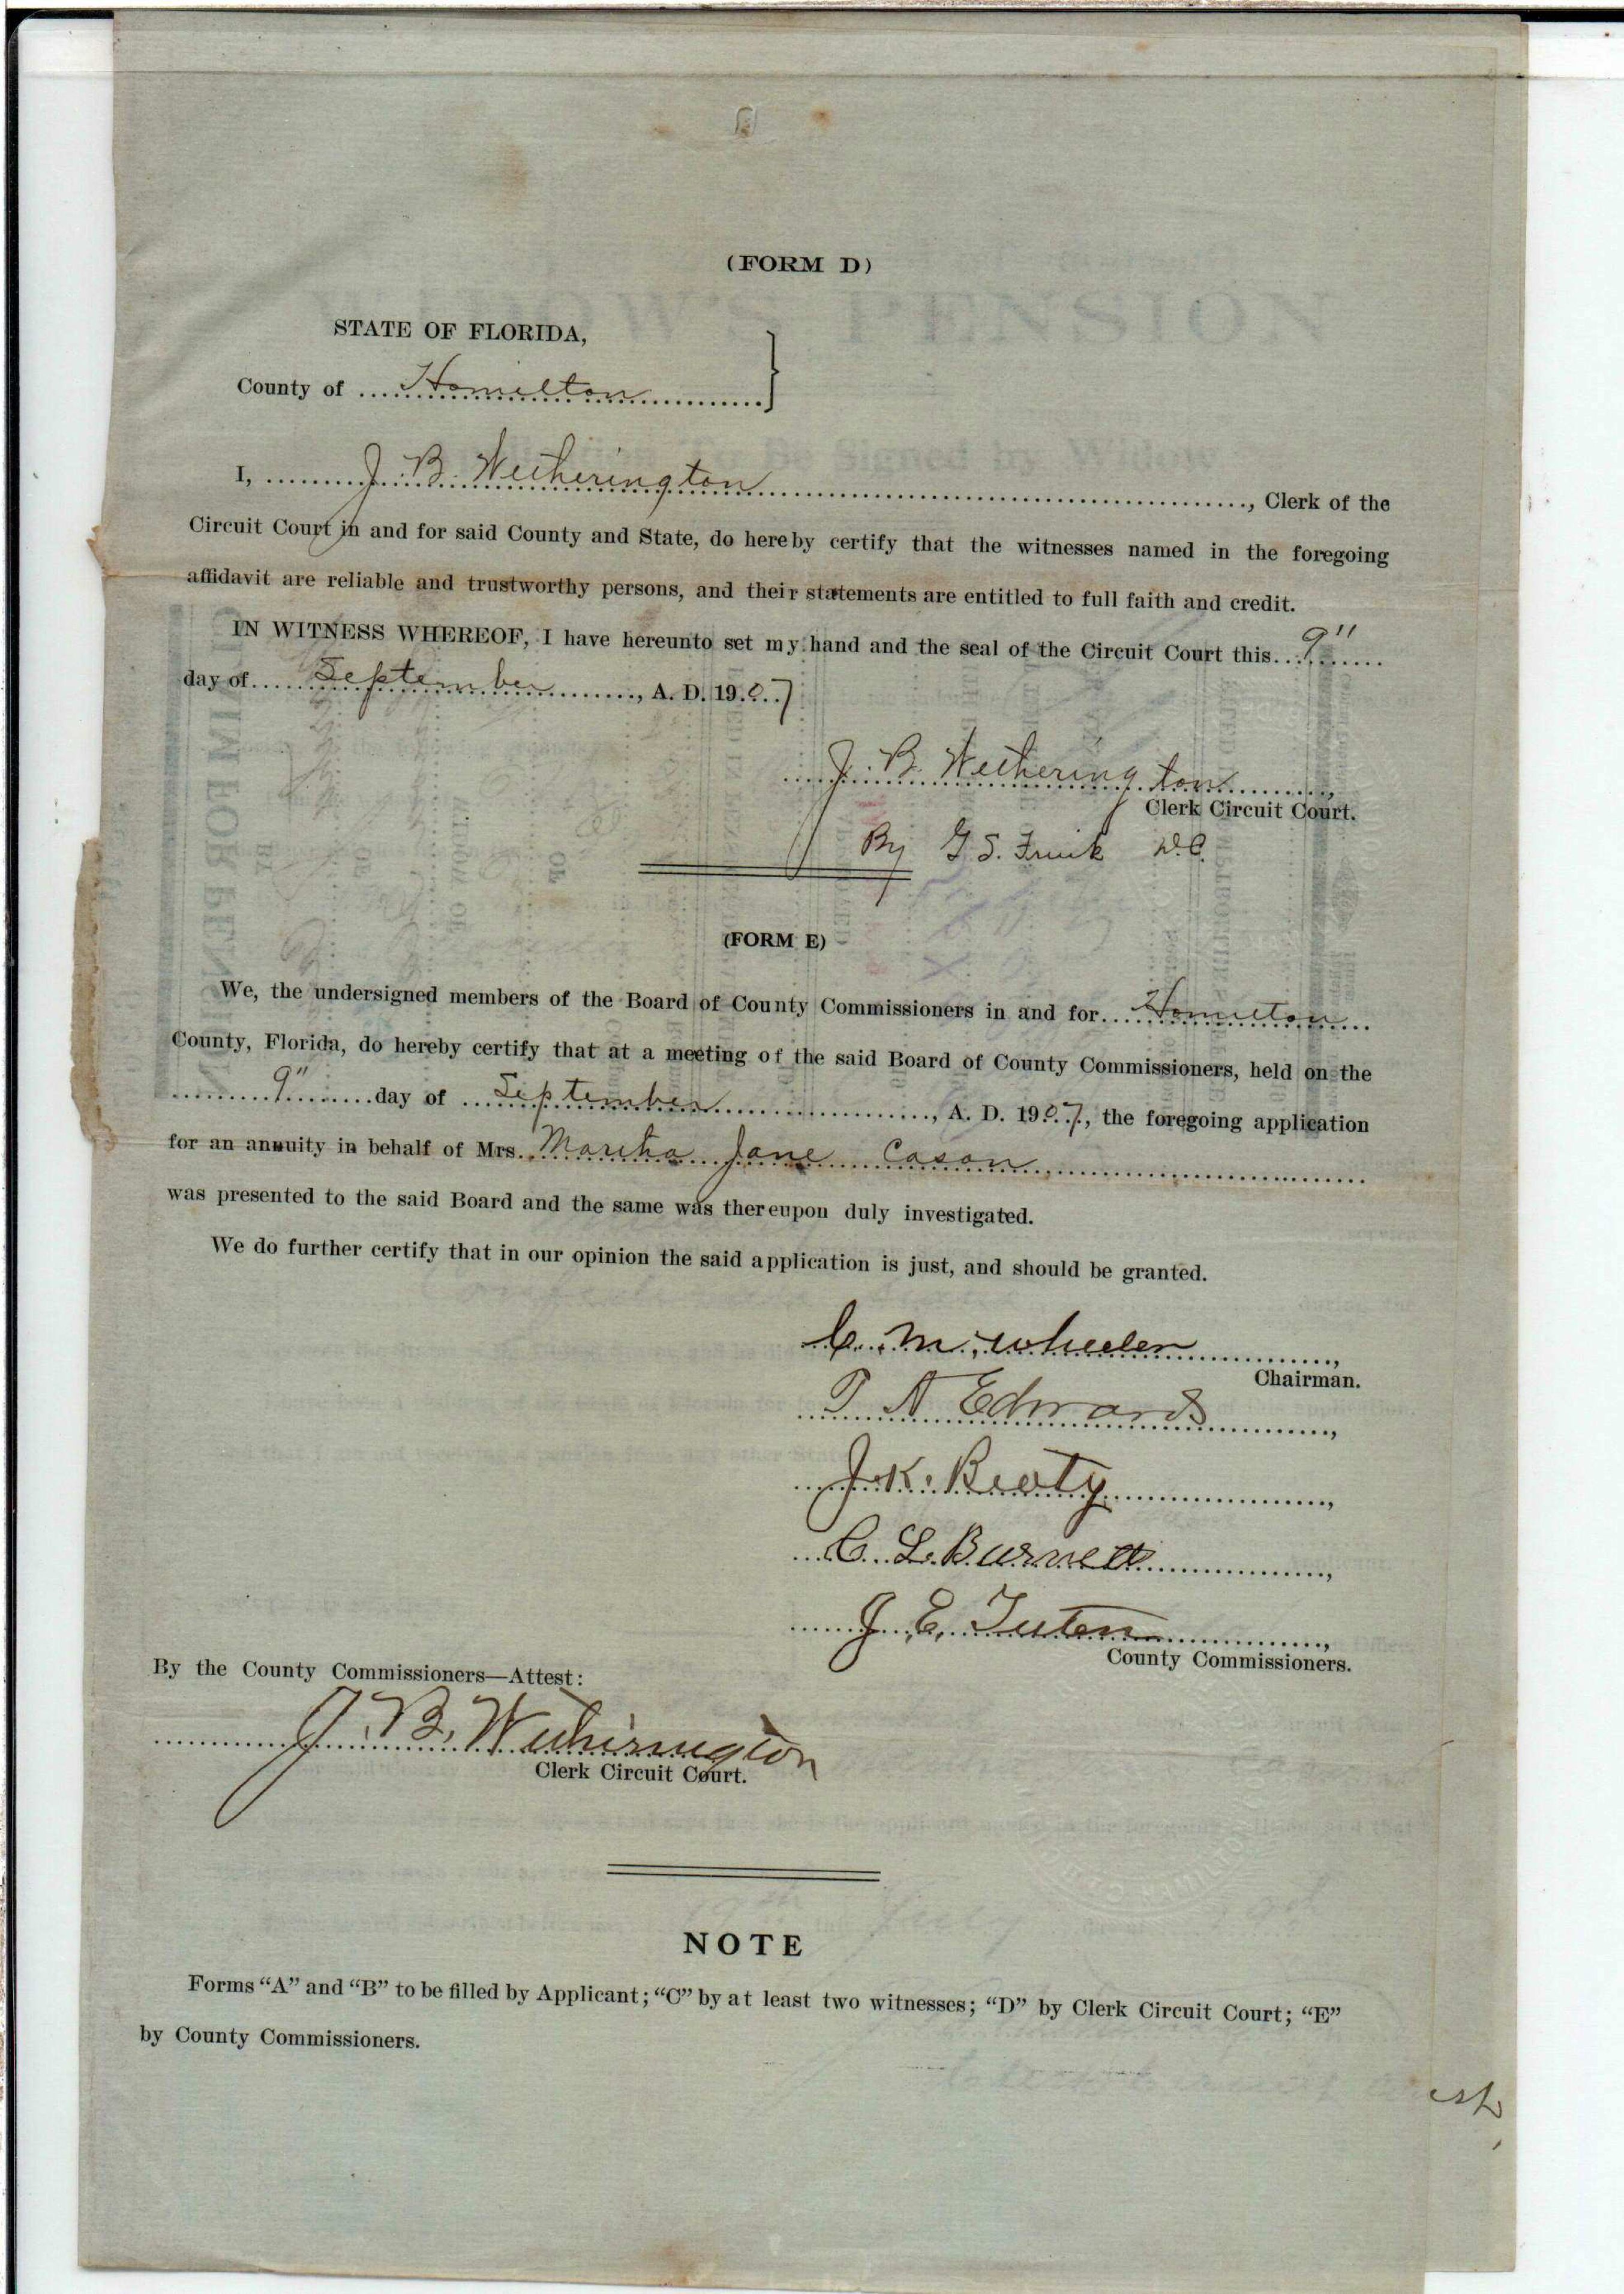 (FORM D)
STATE OF FLORIDA,
County of Hamilton
I, J. B. Wetherington, Clerk of the
Circuit Court in and for said County and State, do hereby certify that the witnesses named in the foregoing
affidavit are reliable and trustworthy persons, and their statements are entitled to full faith and credit.
IN WITNESS WHEREOF, I have hereunto set my hand and the seal of the Circuit Court this 9"
day of September, A. D. 1907
J. B. Wetherington
Clerk Circuit Court.
By G. S. Frink D.C.
(FORM E)
We, the undersigned members of the Board of County Commissioners in and for Hamilton
County, Florida, do hereby certify that at a meeting of the said Board of County Commissioners, held on the
9" day of September, A. D. 1907, the foregoing application
for an annuity in behalf of Mrs. Martha Jane Cason
was presented to the said Board and the same was thereupon duly investigated.
We do further certify that in our opinion the said application is just, and should be granted.
C. M. Wheeler,
Chairman.
T A Edwards,
J. K. Beaty,
C. L. Burnett,
J. E. Tuten,
County Commissioners.
By the County Commissioners—Attest:
J. B. Wetherington
Clerk Circuit Court.
NOTE
Forms “A” and “B” to be filled by Applicant; “C” by at least two witnesses; “D” by Clerk Circuit Court; “E”
by County Commissioners.